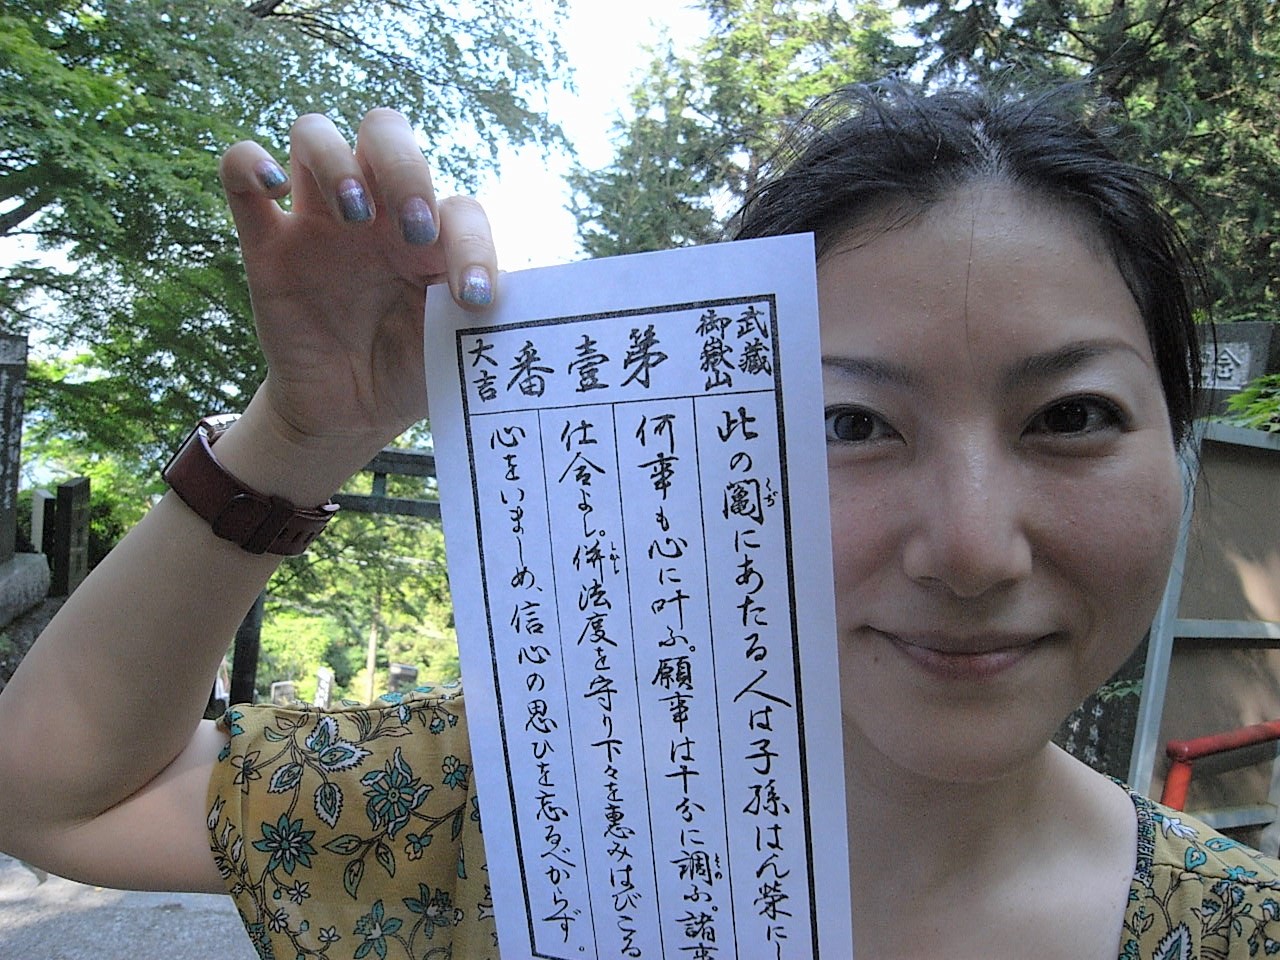 武藏
御嶽山
第壹番
大吉
此の鬮にあたる人は子孫はん榮にし
くぢ
何事も心に叶ふ。願事は十分に調ふ。諸事
とゝの
仕合よし。併法度を守り下々を惠みはびこる
しかし
心をいましめ、信心の思ひを忘るべからず。